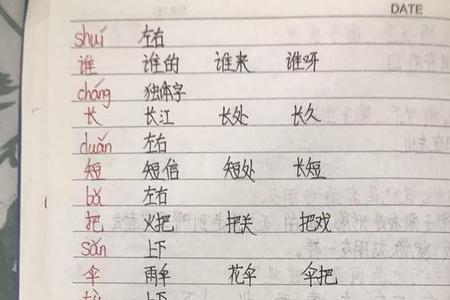 DATE
shuí 左右
谁 谁的 谁来 谁呀
cháng 独体字
长 长江 长处 长久
duǎn 左右
短 短信 短处 长短
bǎ 左右
把 火把 把关 把戏
sǎn 上下
伞 雨伞 花伞 伞把
上下